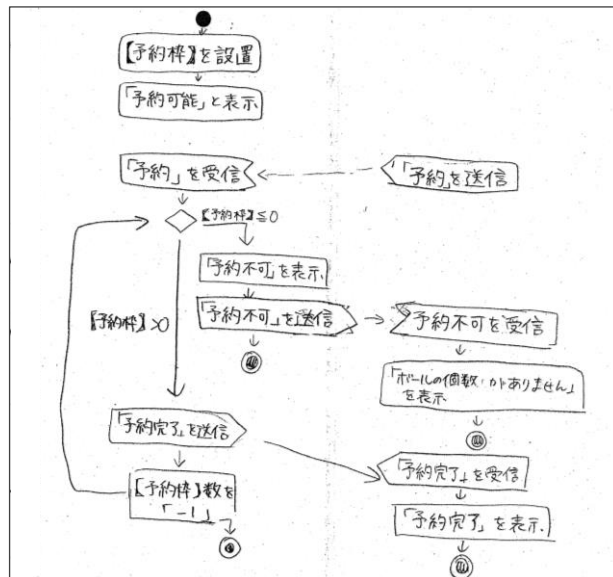 【予約枠】を設置
「予約可能」と表示
「予約」を受信
「予約」を送信
【予約枠】≦0
「予約不可」を表示
「予約不可」を送信
予約不可を受信
【予約枠】>0
「ボールの個数がありません」
を表示
「予約完了」を送信
「予約完了」を受信
【予約枠】数を
「-1」
「予約完了」を表示